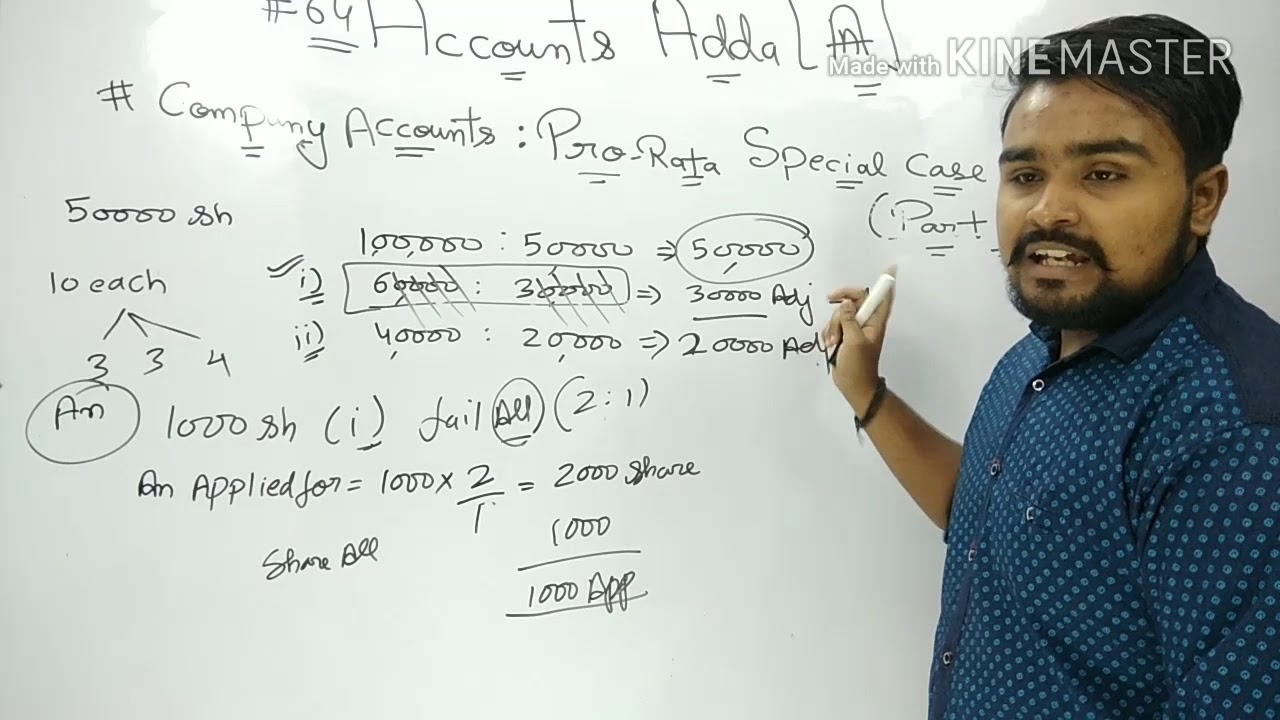 #64 Accounts Adda [A]
Made with KINEMASTER
# Company Accounts : Pro-Rata Special Case
(Part
50000 sh
10 each
3 3 4
1,00,000 : 50000 ⇒ 50,000
i) 60000 : 30000 ⇒ 30000 Adj
ii) 40000 : 20,000 ⇒ 20000 Adj
An 1000 sh (i) fail All (2:1)
An Applied for = 1000 × 2/1 = 2000 share
Share All 1000
1000 App